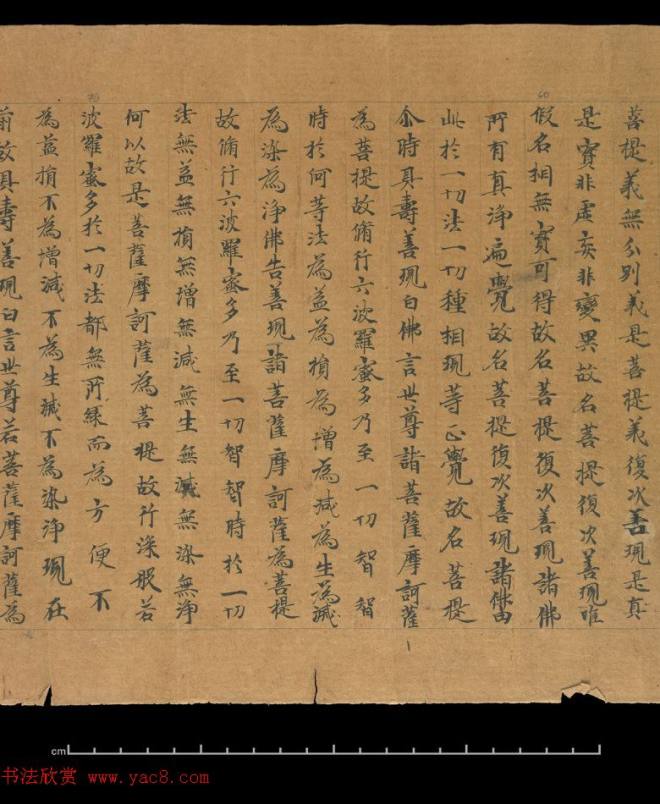 菩提義無分別義是菩提義復次善現是真
是實非虛妄非變異故名菩提復次善現唯
假名相無實可得故名菩提復次善現諸佛
所有真淨遍覺故名菩提復次善現諸佛由
此於一切法一切種相現等正覺故名菩提
尒時具壽善現白佛言世尊諸菩薩摩訶薩
為菩提故脩行六波羅蜜多乃至一切智智
時於何等法為益為損為增為減為生為滅
為染為淨佛告善現諸菩薩摩訶薩為菩提
故脩行六波羅蜜多乃至一切智智時於一切
法無益無損無增無減無生無滅無染無淨
何以故是菩薩摩訶薩為菩提故行深般若
波羅蜜多於一切法都無所緣而為方便不
為益損不為增減不為生滅不為染淨現在
前故具壽善現白言世尊若菩薩摩訶薩為
60
70
cm
书法欣赏 www.yac8.com